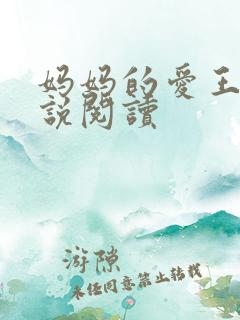 妈妈的爱王
說閱讀
游隙
未经同意禁止转载